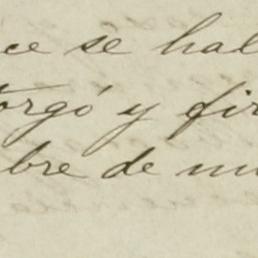 ce se hal
torgó y fir
bre de mi